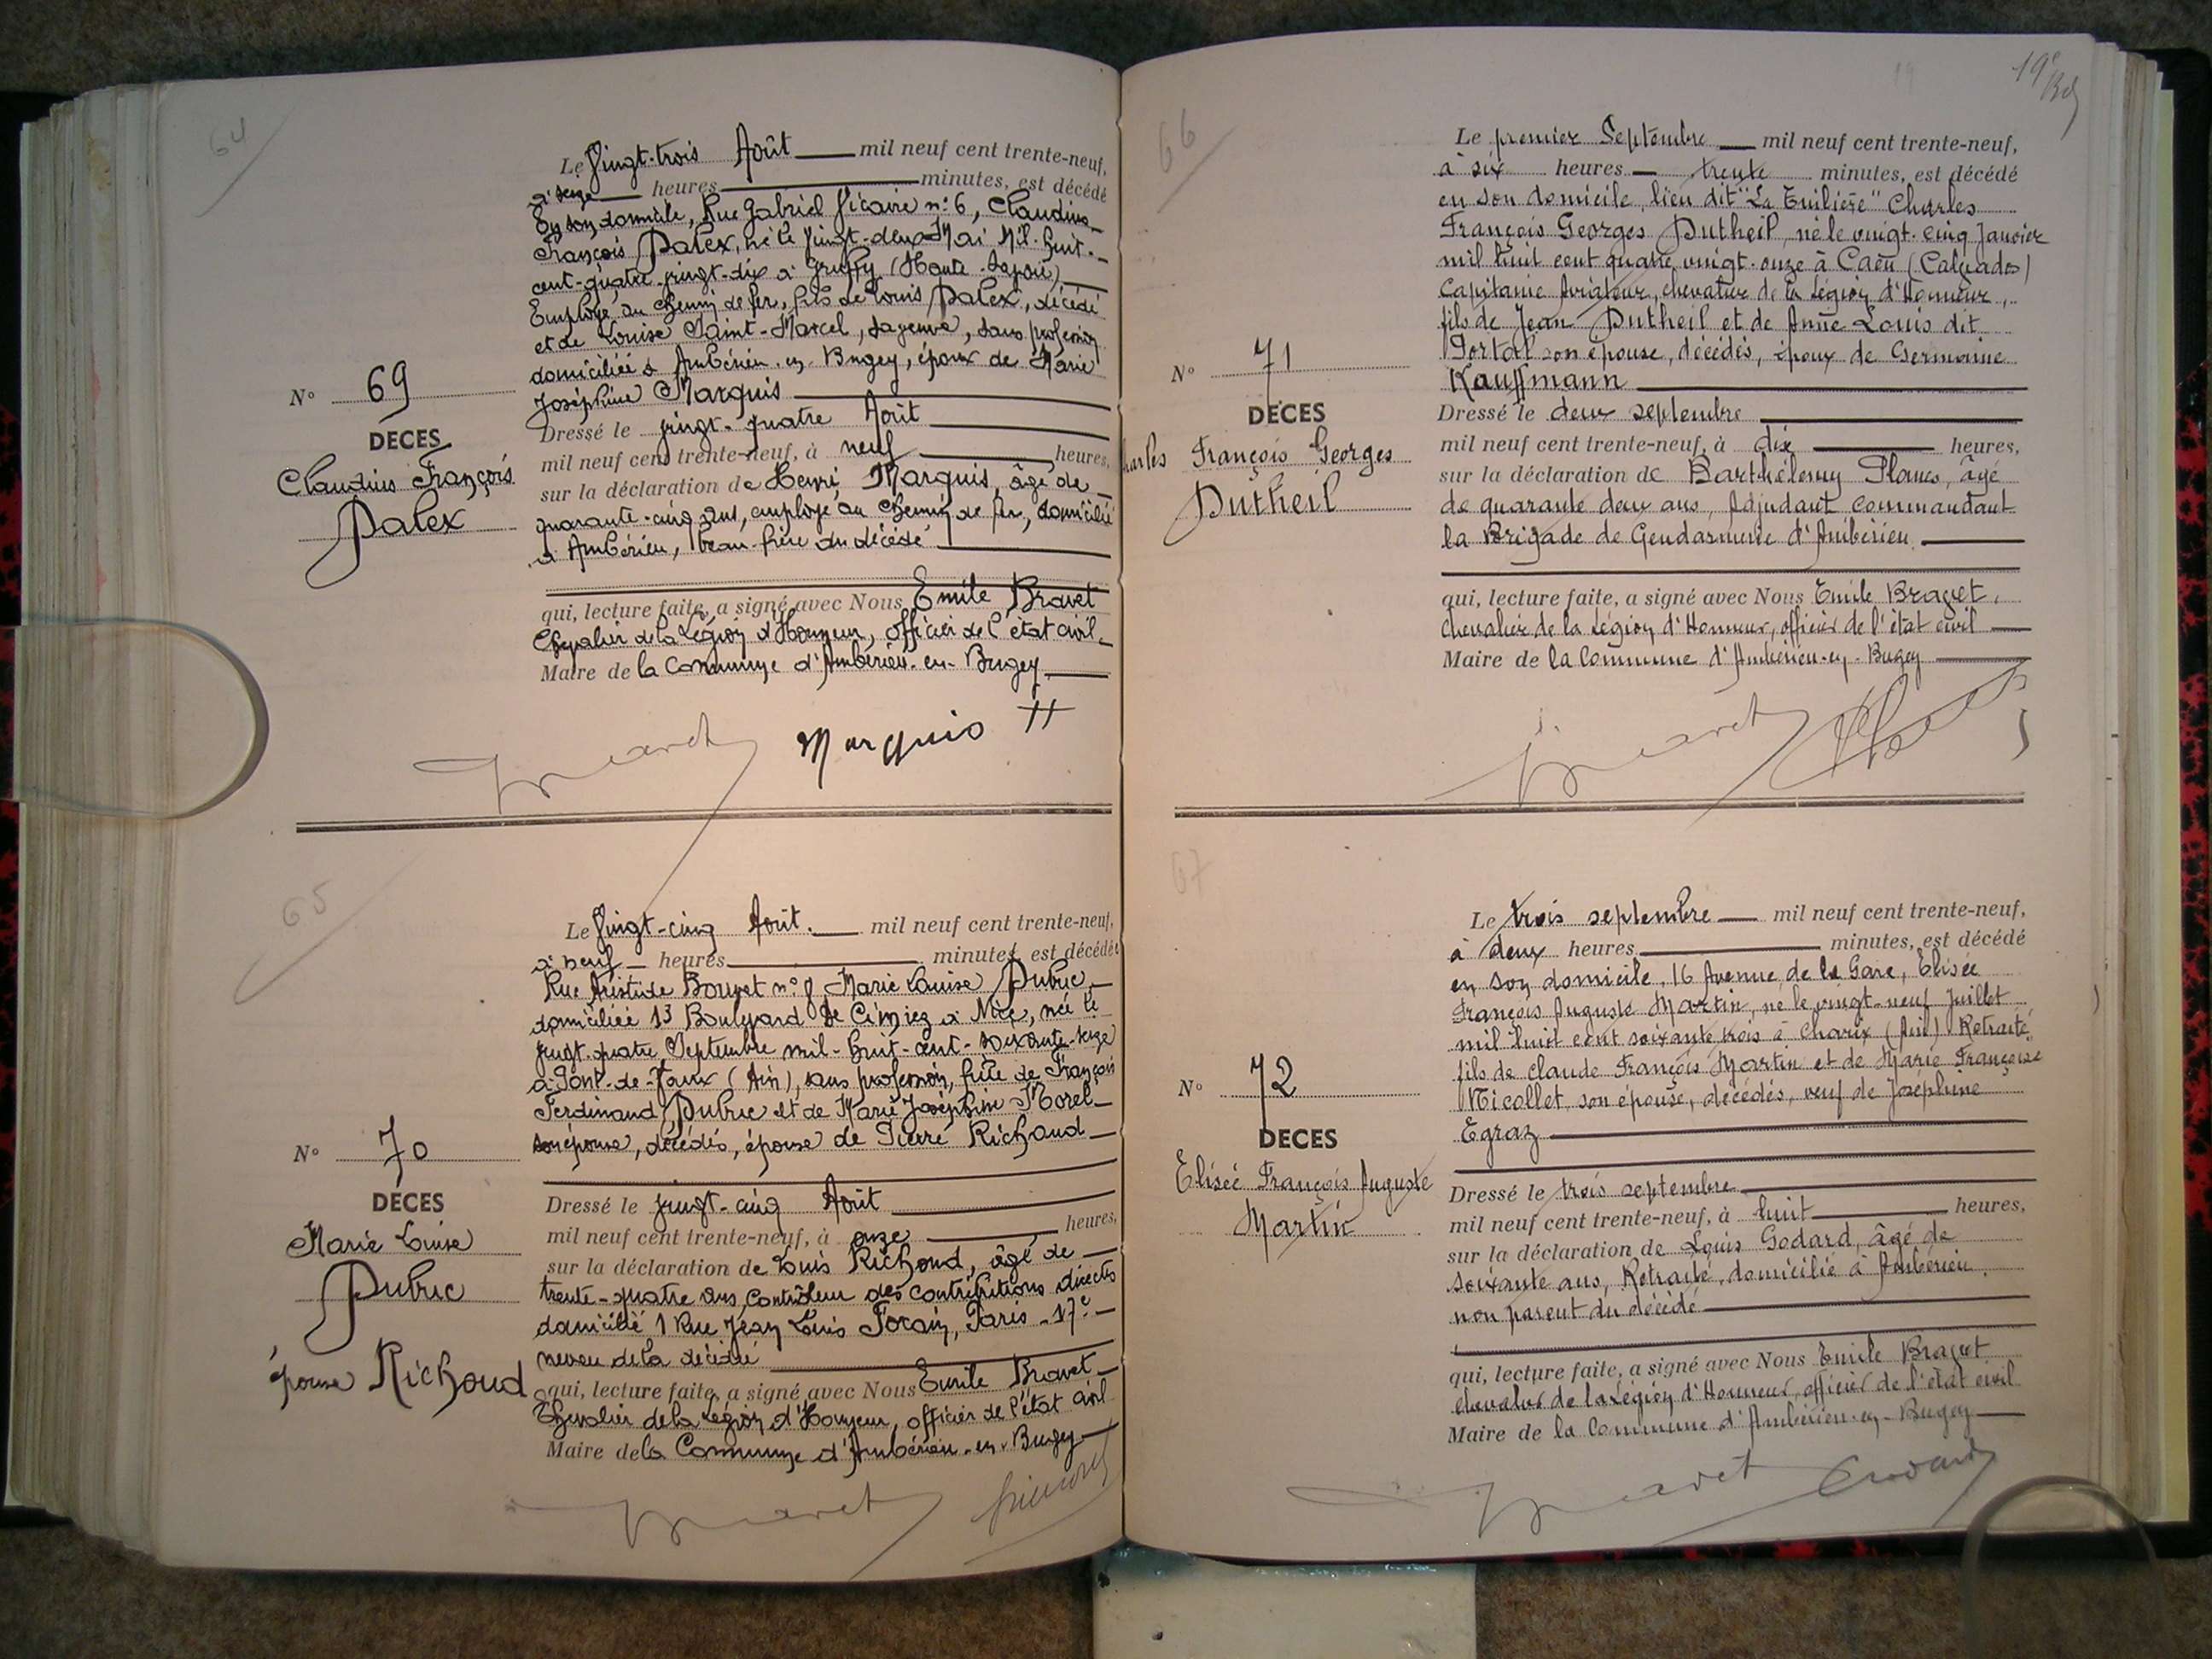 64
Le Vingt-trois Août mil neuf cent trente-neuf,
à seize heures minutes, est décédé
En son domicile, Rue Gabriel Vicaire n° 6, Claudius
François Dalex, né le Vingt-deux Mai Mil-huit-
cent-quatre-vingt-dix à Gruffy (Haute-Savoie)
Employé au Chemin de fer, fils de Louis Dalex, décédé
et de Louise Saint-Marcel, sa veuve, sans profession
domiciliée à Ambérieu-en-Bugey, époux de Marie
Joséphine Marquis
N° 69
DECES
Claudius François
Dalex
Dressé le vingt-quatre Août
mil neuf cent trente-neuf, à neuf heures,
sur la déclaration de Henri Marquis, âgé de
quarante-cinq ans, employé au Chemin de fer, domicilié
à Ambérieu, beau-frère du décédé
qui, lecture faite, a signé avec Nous Emile Bravet
Chevalier de la Légion d'Honneur, officier de l'état civil
Maire de la Commune d'Ambérieu-en-Bugey
Bravet Marquis H
65
Le Vingt-cinq Août. mil neuf cent trente-neuf,
à neuf heures minutes, est décédée
Rue Aristide Bouvet n° 8 Marie Louise Dubuc
domiciliée 13 Boulevard de Cimiez à Nice, née le
vingt-quatre Septembre mil-huit-cent-soixante-seize
à Pont-de-Vaux (Ain), sans profession, fille de François
Ferdinand Dubuc et de Marie Joséphine Morel
son épouse, décédés, épouse de Pierre Richoud
N° 70
DECES
Marie Louise
Dubuc
épouse Richoud
Dressé le vingt-cinq Août
mil neuf cent trente-neuf, à onze heures,
sur la déclaration de Louis Richoud, âgé de
trente-quatre ans, Contrôleur des Contributions directes
domicilié 1 Rue Jean Louis Forain, Paris-17e
neveu de la décédée
qui, lecture faite, a signé avec Nous Emile Bravet
Chevalier de la Légion d'Honneur, officier de l'état civil
Maire de la Commune d'Ambérieu-en-Bugey
Bravet
19e
66
Le premier Septembre mil neuf cent trente-neuf,
à six heures trente minutes, est décédé
en son domicile, lieu dit "La Tuilière" Charles
François Georges Dutheil, né le vingt-cinq Janvier
mil huit cent quatre vingt-onze à Caen (Calvados)
Capitaine Aviateur, chevalier de la Légion d'Honneur,
fils de Jean Dutheil et de Anne Louis dit
Portal son épouse, décédés, époux de Germaine
Kauffmann
N° 71
DECES
Charles François Georges
Dutheil
Dressé le deux septembre
mil neuf cent trente-neuf, à dix heures,
sur la déclaration de Barthélemy Planes, âgé
de quarante deux ans, Adjudant commandant
la Brigade de Gendarmerie d'Ambérieu.
qui, lecture faite, a signé avec Nous Emile Bravet,
chevalier de la Légion d'Honneur, officier de l'état civil
Maire de la Commune d'Ambérieu-en-Bugey
Bravet
67
Le trois septembre mil neuf cent trente-neuf,
à deux heures minutes, est décédé
en son domicile, 16 Avenue de la Gare, Elisée
François Auguste Martin, né le vingt-neuf Juillet
mil huit cent soixante trois à Charix (Ain) Retraité
fils de Claude François Martin et de Marie Françoise
Nicollet son épouse, décédés, veuf de Joséphine
Egraz
N° 72
DECES
Elisée François Auguste
Martin
Dressé le trois septembre
mil neuf cent trente-neuf, à huit heures,
sur la déclaration de Louis Godard, âgé de
soixante ans, Retraité, domicilié à Ambérieu,
non parent du décédé
qui, lecture faite, a signé avec Nous Emile Bravet
chevalier de la Légion d'Honneur, officier de l'état civil
Maire de la Commune d'Ambérieu-en-Bugey
Bravet Godard